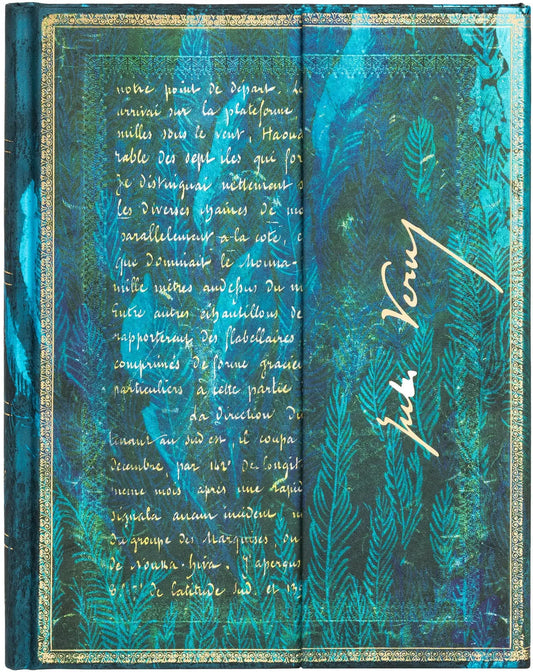 notre point de départ. Le
arrivai sur la plateforme
milles sous le vent, Haoua
rable des sept iles que for
Je distinguai nettement s
les diverses chaines de mo
parallelement a la cote, e
que dominait le Mouna-
mille mètres audessus du n
Entre autres échantillons de
rapporterent des flabellaires
comprimés de forme gracieu
particuliers à cette partie
La direction Du
tenant au sud est, il coupa
décembre, par 142° de longit
meme mois après une rapid
signala aucun incident, n
du groupe des Marquises, ou
de Nouka-hiva. J'aperçus
8° 5' de latitude sud. et 13
Jules Verne